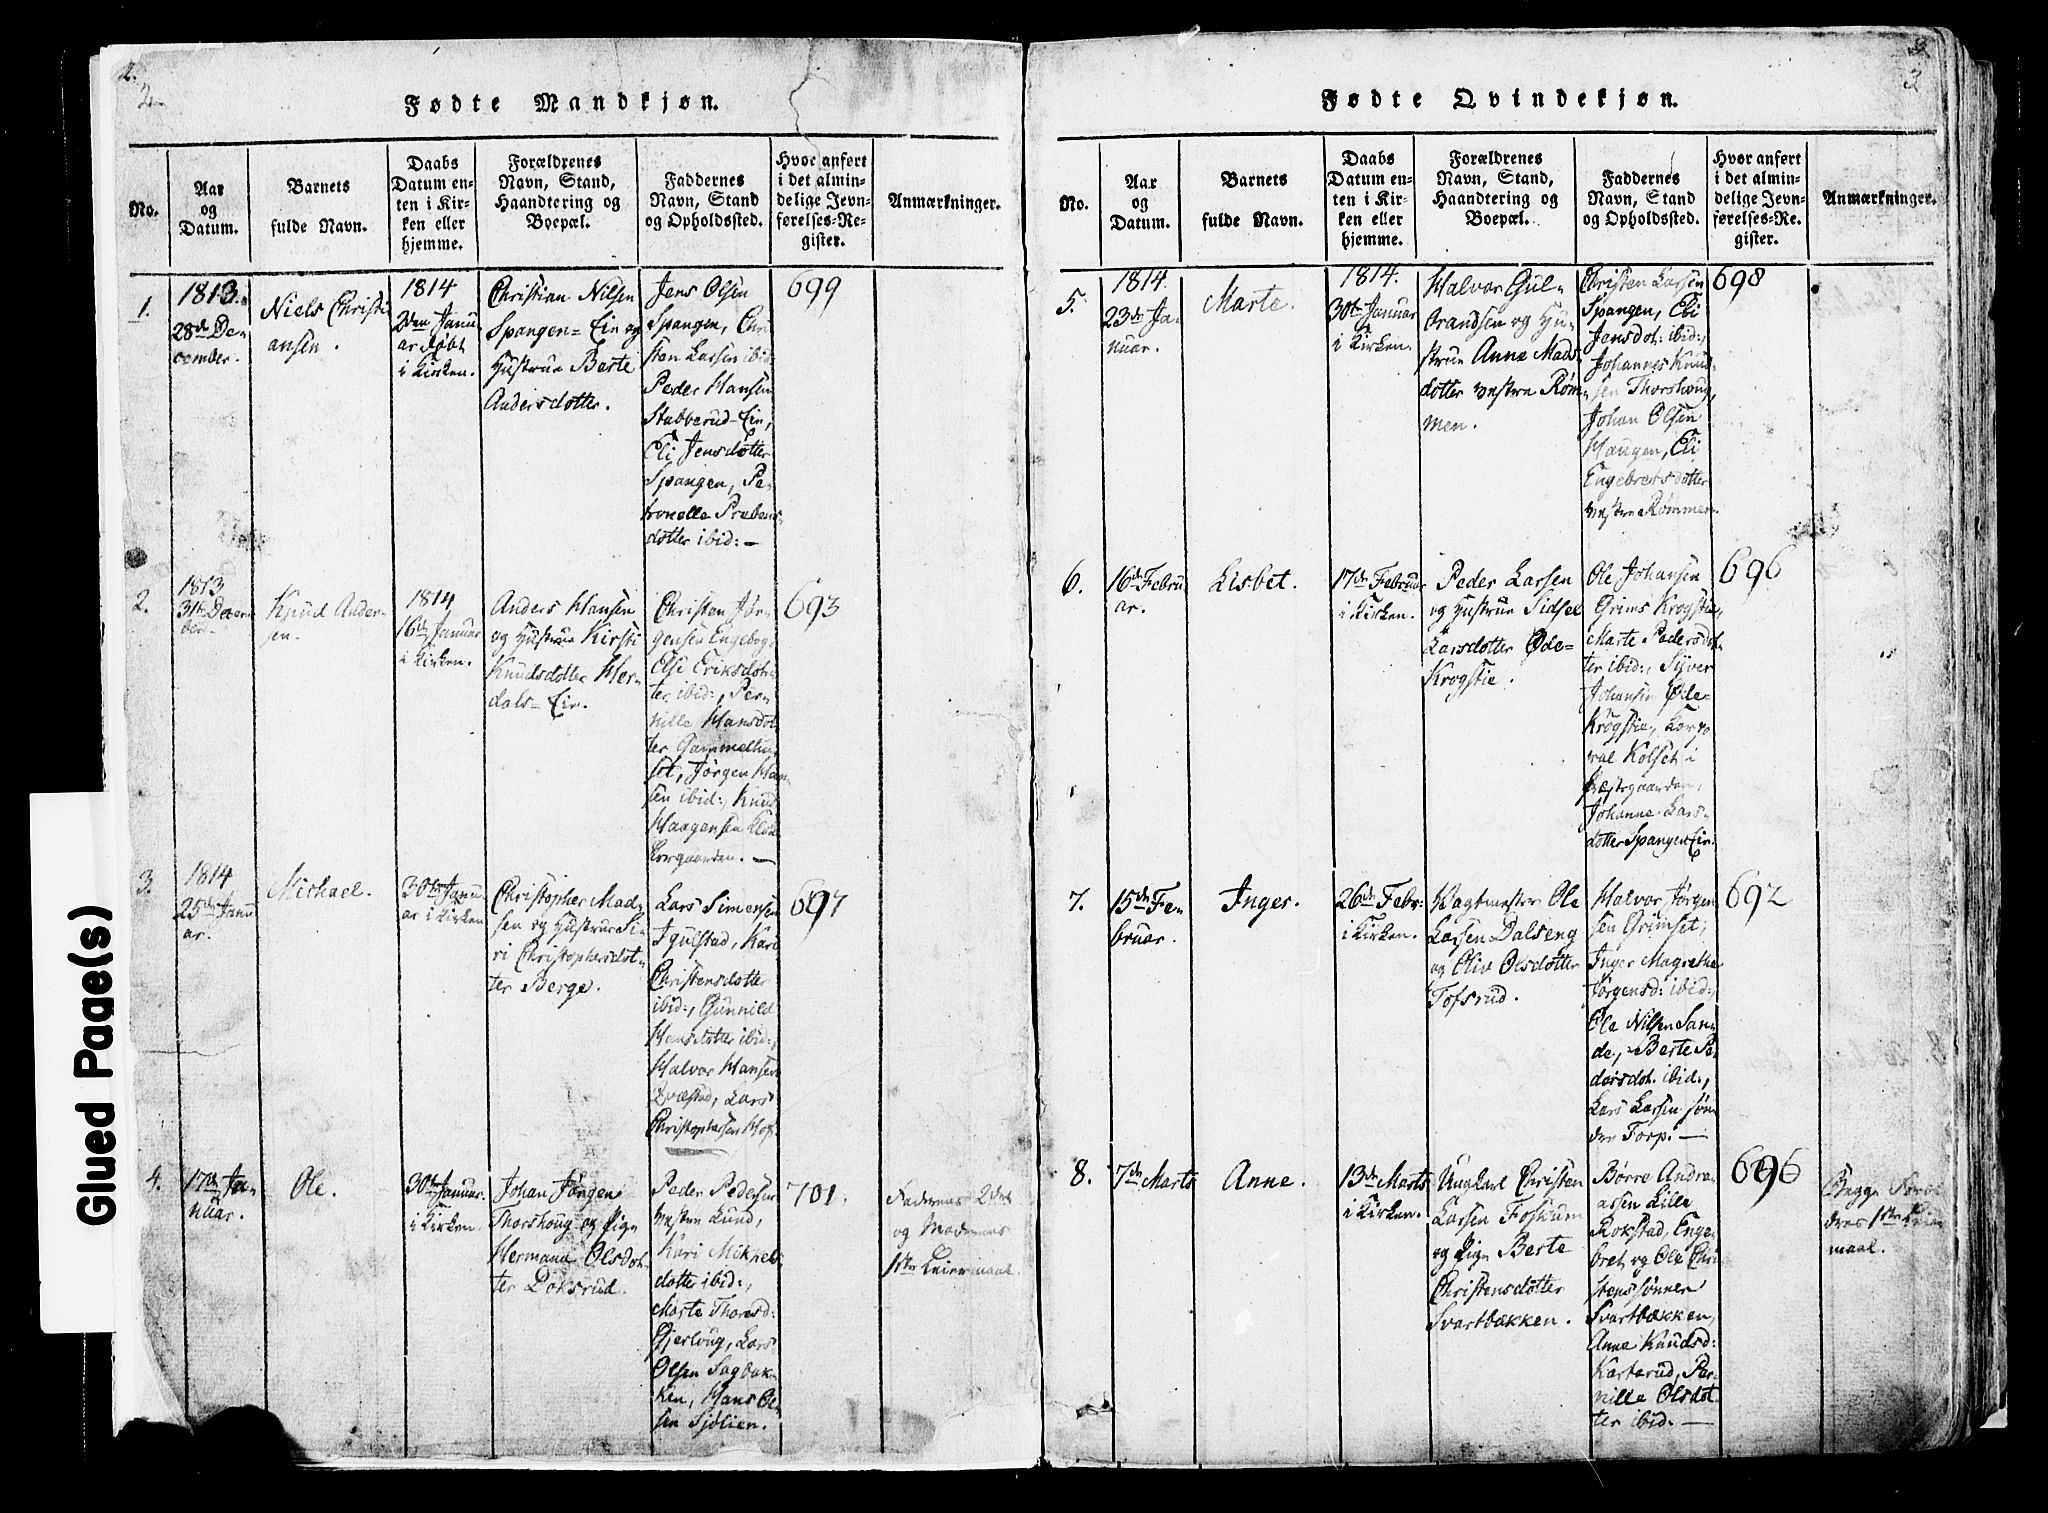 2.
2
Fødte Mandkjøn.
No.
Aar
og
Datum.
Barnets
fulde Navn.
Daabs
Datum en-
ten i Kir-
ken eller
hjemme.
Forældrenes
Navn, Stand,
Haandtering og
Boepæl.
Faddernes
Navn, Stand
og Opholdssted.
Hvor anført
i det almin-
delige Jevn-
førelses-Re-
gister.
Anmærkninger.
1.
1813.
28de De-
cember.
Niels Christi
ansen.
1814
2den Janu-
ar døbt
i Kirken.
Christian Nilsen
Spangen-Eie og
Hustrue Berte
Andersdotter.
Jens Olsen
Spangen, Chri
sten Larsen ibid:
Peder Hansen
Stubberud-Eie,
Eli Jensdotter
Spangen, Pe-
tronelle Prebens
dotter ibid:-
699
2.
1813
31te Decem
ber.
Knud Ander-
sen.
1814
16de Januar
i Kirken.
Anders Hansen
og Hustrue Kirsti
Knudsdotter Her-
dals-Eie.
Christen Jør-
gensen Engebog
Else Eriksdot-
ter ibid:, Per-
nille Hansdot
ter Gammelhu-
set, Jørgen Han-
sen ibid:, Knud
Haagensen Klok
kergaarden. -
693
3.
1814
25de Janu
ar.
Michael.
30te Janu-
ar i Kirken
Christopher Mad-
sen og Hustrue Si-
ri Christophersdot-
ter Berge.
Lars Simensen
Igulstad, Kari
Christensdotter
ibid:, Gunnild
Hansdotter ibid:,
Halvor Hansen
Qvæstad, Lars
Christophersen Hof.
697
4.
17de Ja-
nuar.
Ole.
30te Januar.
i Kirken.
Johan Jørgens
Thorshoug og Pige
Hermana Olsdot-
ter Doksrud.
Peder Pedersen
vestre Lund,
Kari Mikkels
dotter ibid:,
Marte Thorsd:
Gjerloug, Lars
Olsen Sagbak-
ken, Hans Ol-
sen Sjølien.
701.
Faderens 2det
og Moderens
1ste Leiermaal.
3
3
Fødte Qvindekjøn.
No.
Aar
og
Datum.
Barnets
fulde Navn.
Daabs
Datum en-
ten i Kir-
ken eller
hjemme.
Forældrenes
Navn, Stand,
Haandtering og
Boepæl.
Faddernes
Navn, Stand
og Opholdssted.
Hvor anført
i det almin-
delige Jevn-
førelses-Re-
gister.
Anmærkninger.
5.
1814.
23de Ja-
nuar.
Marte.
1814.
30te Januar
i Kirken.
Halvor Gul-
brandsen og Hu-
strue Anne Mads-
dotter vestre Røm-
men.
Christen Larsen
Spangen, Eli
Jensdot: ibid:,
Johannes Knud-
sen Thorshoug,
Johan Olsen
Haugen, Eli
Engebretsdotter
vestre Rømmen.
698
6.
16de Febru
ar.
Lisbet.
17de Februar
i Kirken.
Peder Larsen
og Hustrue Sidsel
Larsdotter Øde-
Krogstie.
Ole Johansen
Grims Krogstie,
Marte Pedersdot-
ter ibid:, Syver
Johansen Øde-
Krogstie, Corpo
ral Kolset i
Præstegaarden,
Johanne Lars-
dotter Spangen Eie.
696
7.
15de Fe-
bruar.
Inger.
26de Febr:
i Kirken.
Vagtmester Ole
Larsen Dalseng
og Oliv Olsdotter
Tofsrud.
Halvor Jørgen
sen Grimset,
Inger Magrethe
Jørgensd: ibid:,
Ole Nilsen San-
de, Berte Pe-
dersdot. ibid:,
Lars Larsen søn-
dre Torp. -
692
8.
7de Marts
Anne.
13de Marts
i Kirken.
Ungkarl Christen
Larsen Foskum
og Pige Berte
Christensdotter
Svartbækken.
Børre Andre-
asen Lille
Rokstad, Enge-
bret og Ole Chri
stenssønner
Svartbækken,
Anne Knudsd:
Karterud, Per-
nille Olsdot-
ter ibid: -
696
Begge Foræl
dres 1ste Leier
maal.
Glued Page(s)